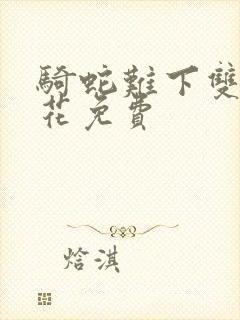 騎蛇難下雙
花免費
焓淇